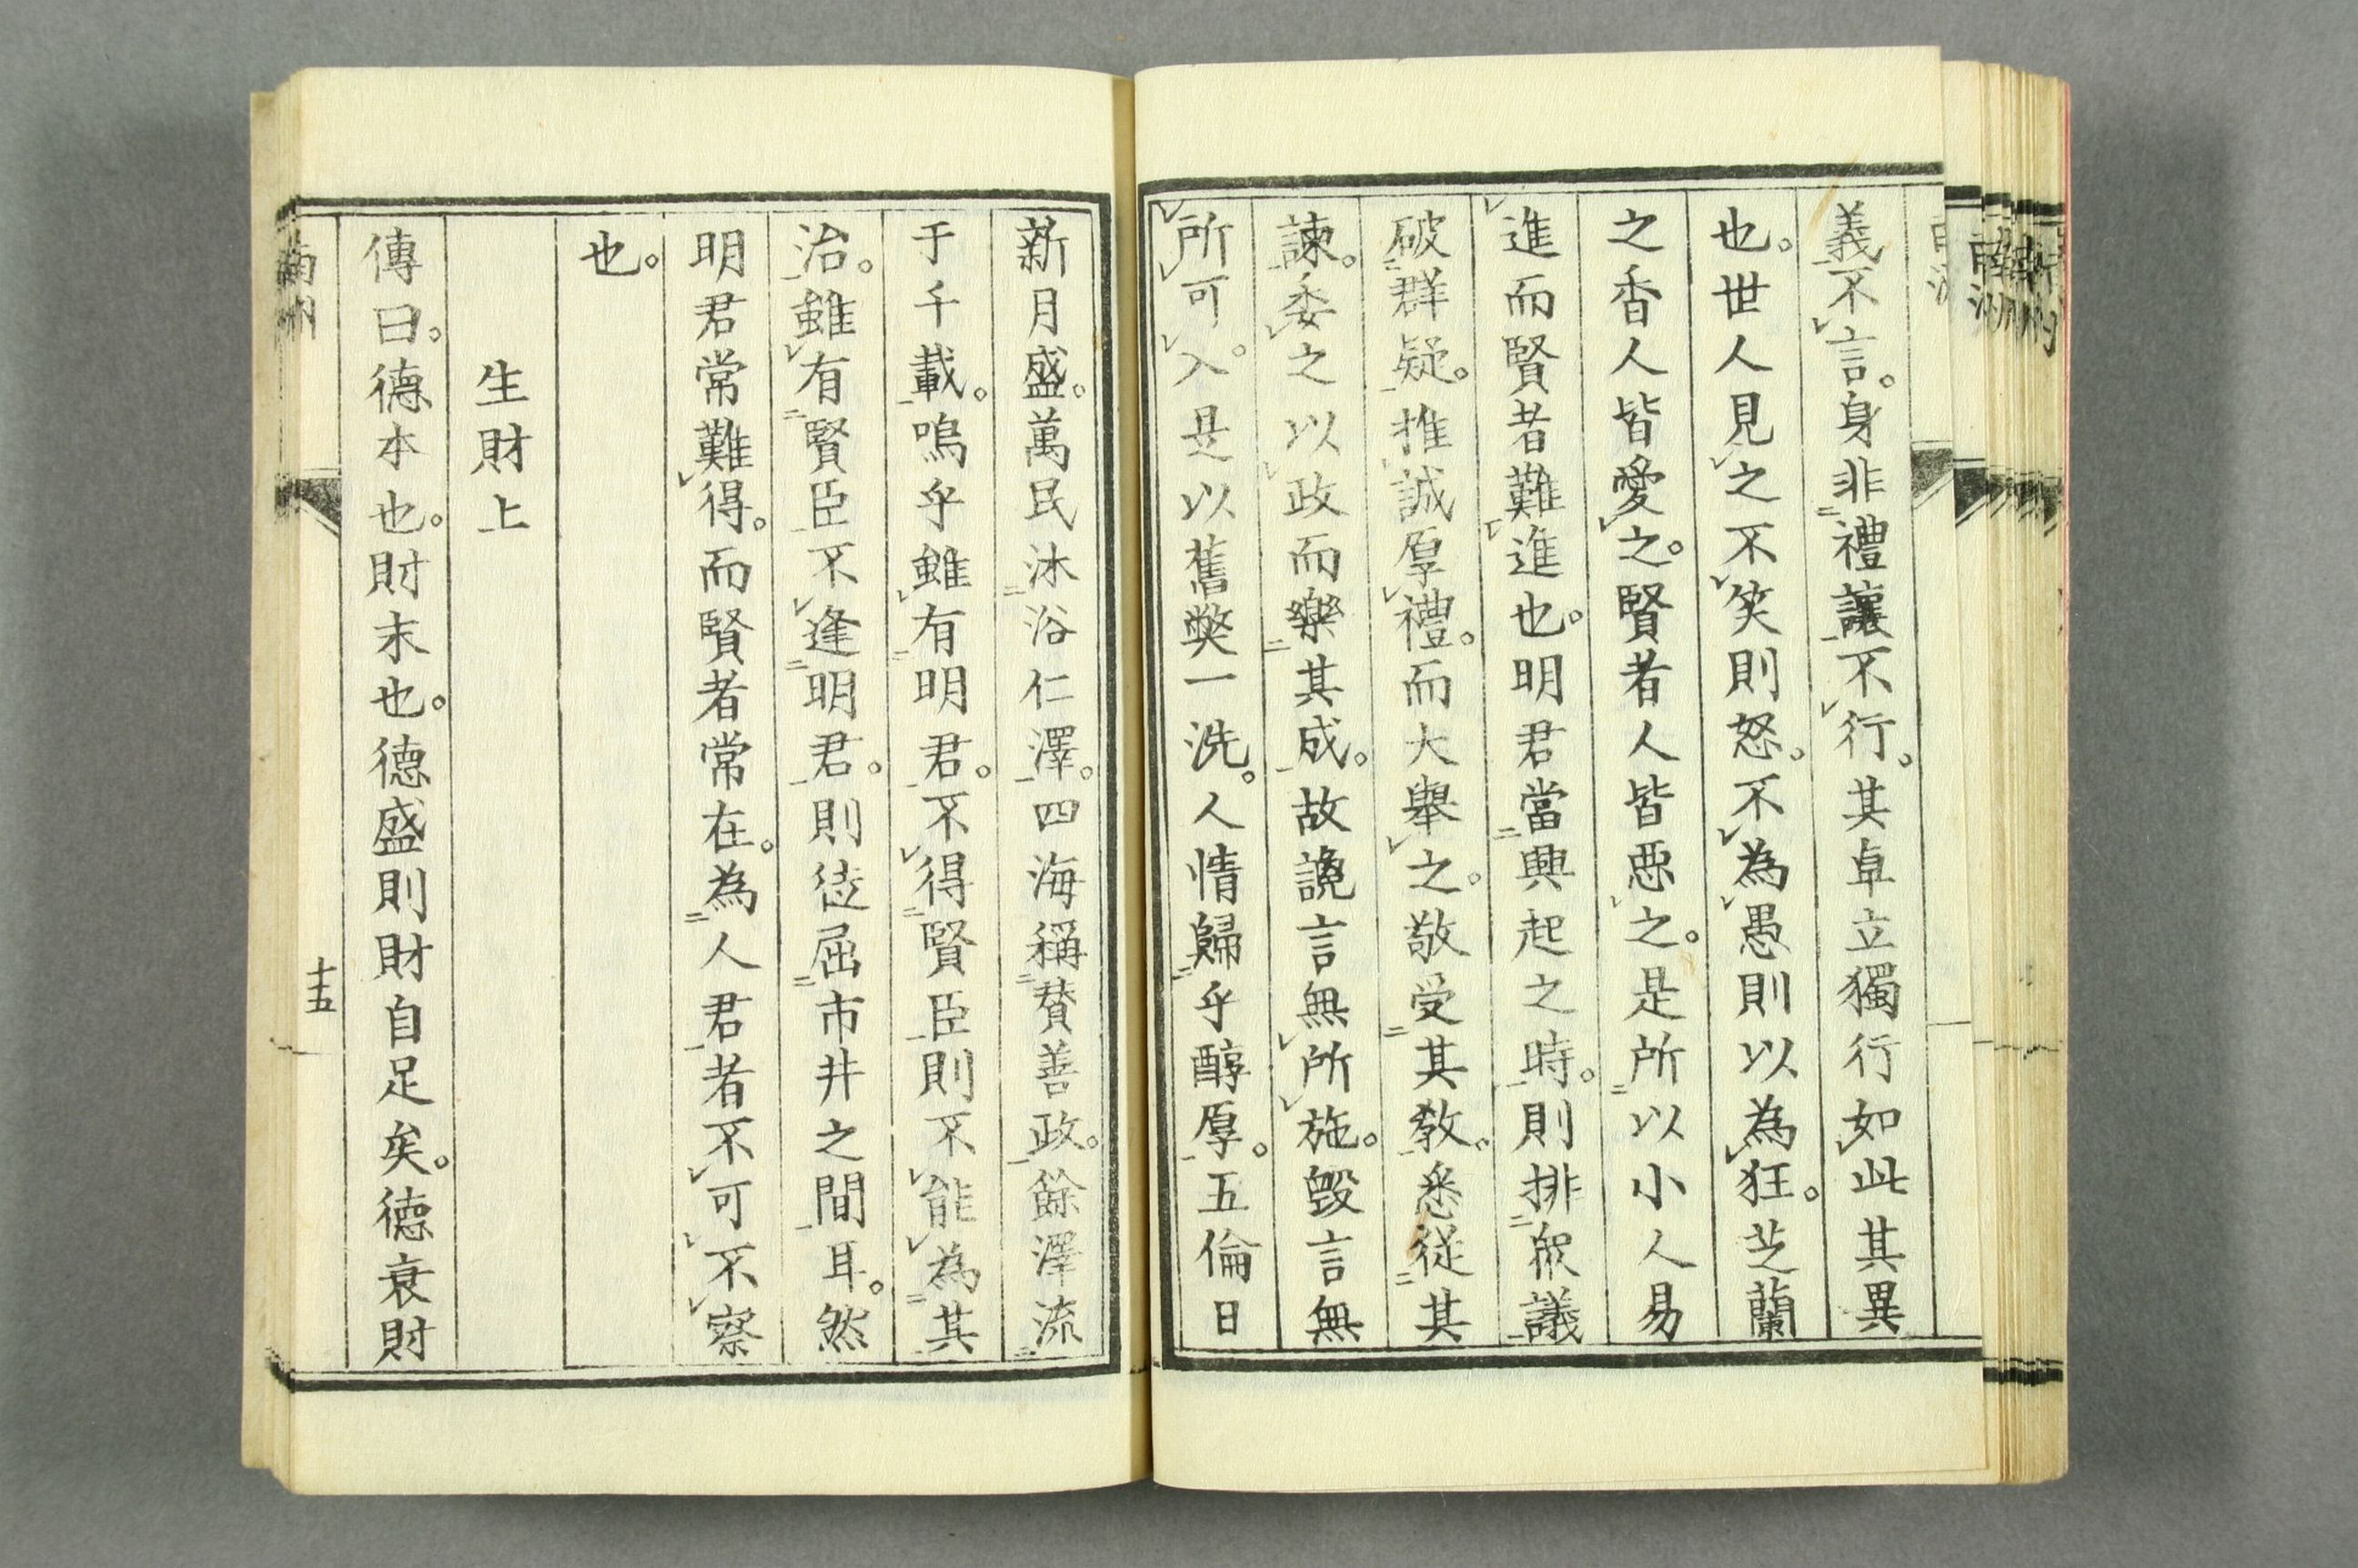 義不言。身非禮讓不行。其卓立獨行如此其異
也。世人見之不笑則怒。不為愚則以為狂。芝蘭
之香人皆愛之。賢者人皆惡之。是所以小人易
進而賢者難進也。明君當興起之時。則排衆議
破群疑。推誠厚禮。而大舉之。敬受其教。悉従其
諫。委之以政而樂其成。故讒言無所施。毀言無
所可入。是以舊獘一洗。人情歸乎醇厚。五倫日
新月盛。萬民沐浴仁澤。四海稱賛善政。餘澤流
于千載。嗚乎雖有明君。不得賢臣則不能為其
治。雖有賢臣不逢明君。則徒屈市井之間耳。然
明君常難得。而賢者常在。為人君者不可不察
也。
生財上
傳曰。德本也。財末也。德盛則財自足矣。德衰財
十五